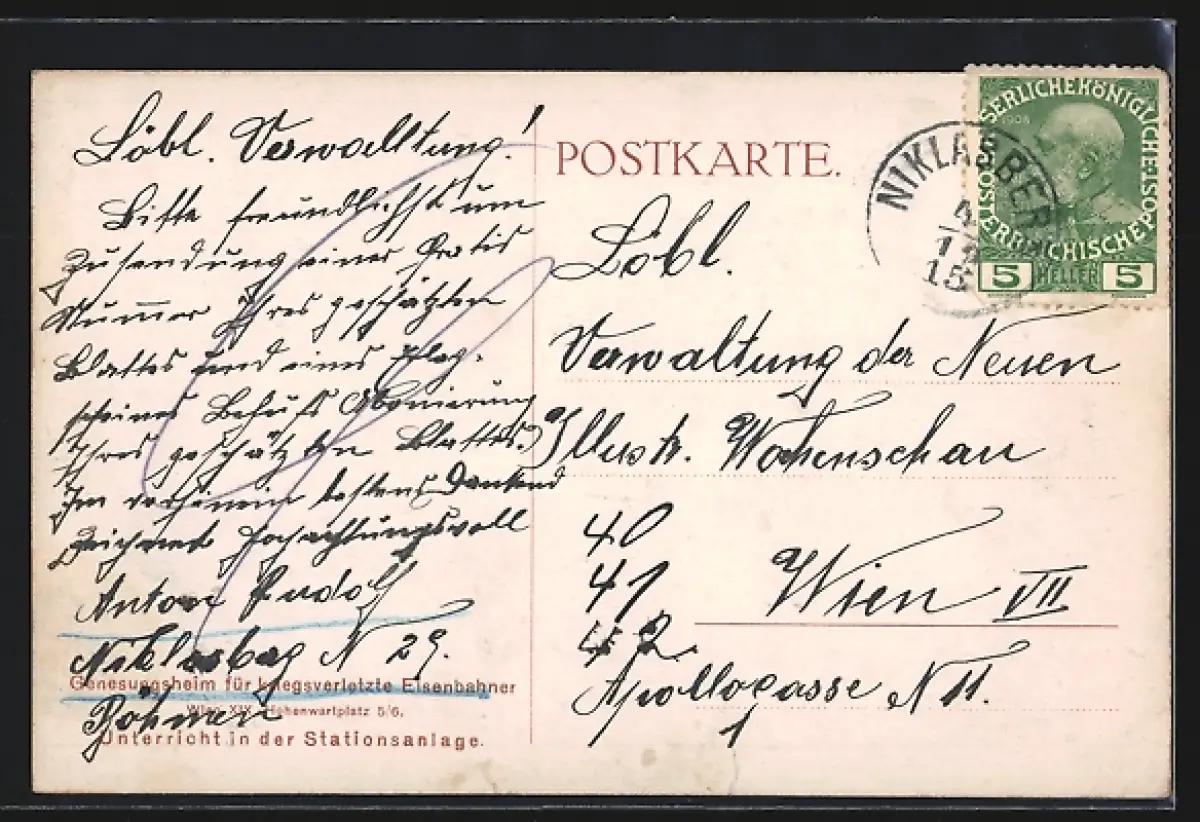 Löbl. Verwalltung!
Bitte freundlichst um
Zusendung einer Gratis
Nummer Ihres geschätzten
Blattes und eines
scheines Behufs Abonierung
Ihres geschätzten Blattes.
Im vorhinein bestens Dankend
Zeichnet Hochachtungsvoll
Anton Rudolf
Niklasberg N 29.
Böhmen
Genesungsheim für kriegsverletzte Eisenbahner
Wien XIX, Hohenwartplatz 5/6.
Unterricht in der Stationsanlage.
POSTKARTE.
NIKLASBER
15
KAISERLICHEKÖNIGLICHE POST
ÖSTERREICHISCHE
1908
5 HELLER 5
Löbl.
Verwaltung der Neuen
Illustr. Wohenschau
40
41
42
Wien VII
Apollogasse N 11.
1